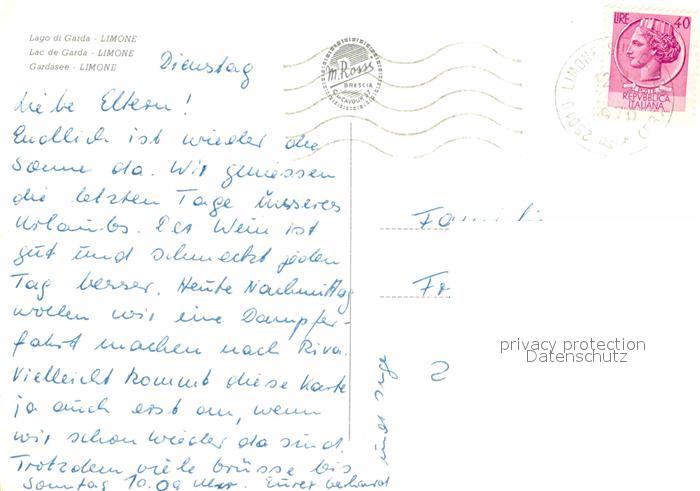 Lago di Garda - LIMONE
Lac de Garda - LIMONE
Gardasee - LIMONE
Dienstag
M. Rossi
BRESCIA
LIRE 40
REPUBBLICA
ITALIANA
25010 LIMONE
Liebe Eltern!
Endlich ist wieder die
Sonne da. Wir geniessen
die letzten Tage unseres
Urlaubs. Der Wein ist
gut und schmeckt jeden
Tag besser. Heute Nachmittag
wollen wir eine Dampfer-
fahrt machen nach Riva.
Vielleicht kommt diese Karte
ja auch erst an, wenn
wir schon wieder da sind.
Trotzdem viele Grüsse bis
Sonntag 10.00 Uhr. Eurer
und Inge
Famili
Fr
2
privacy protection
Datenschutz